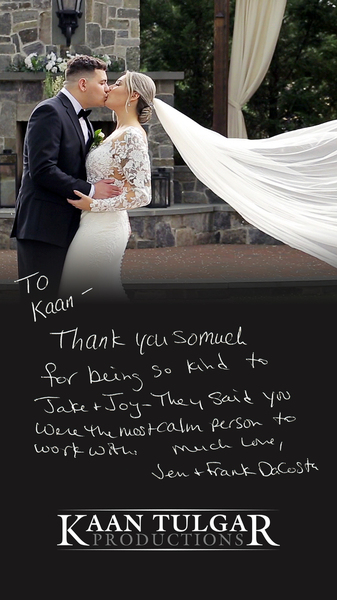 To
Kaan -
Thank you so much
for being so kind to
Jake + Joy - They said you
were the most calm person to
work with. much love,
Jen + Frank DaCosta
KAAN TULGAR
PRODUCTIONS